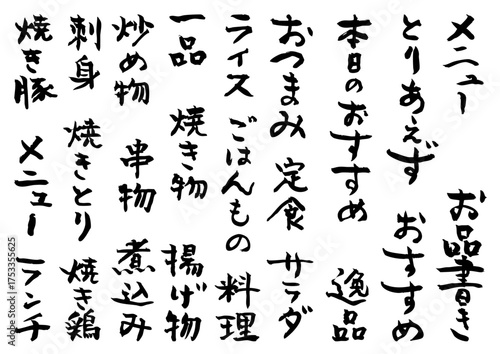 メニュー お品書き
とりあえず おすすめ
本日のおすすめ 逸品
おつまみ 定食 サラダ
ライス ごはんもの 料理
一品 焼き物 揚げ物
炒め物 串物 煮込み
刺身 焼きとり 焼き鶏
焼き豚 メニュー ランチ
Adobe Stock | #1753355625